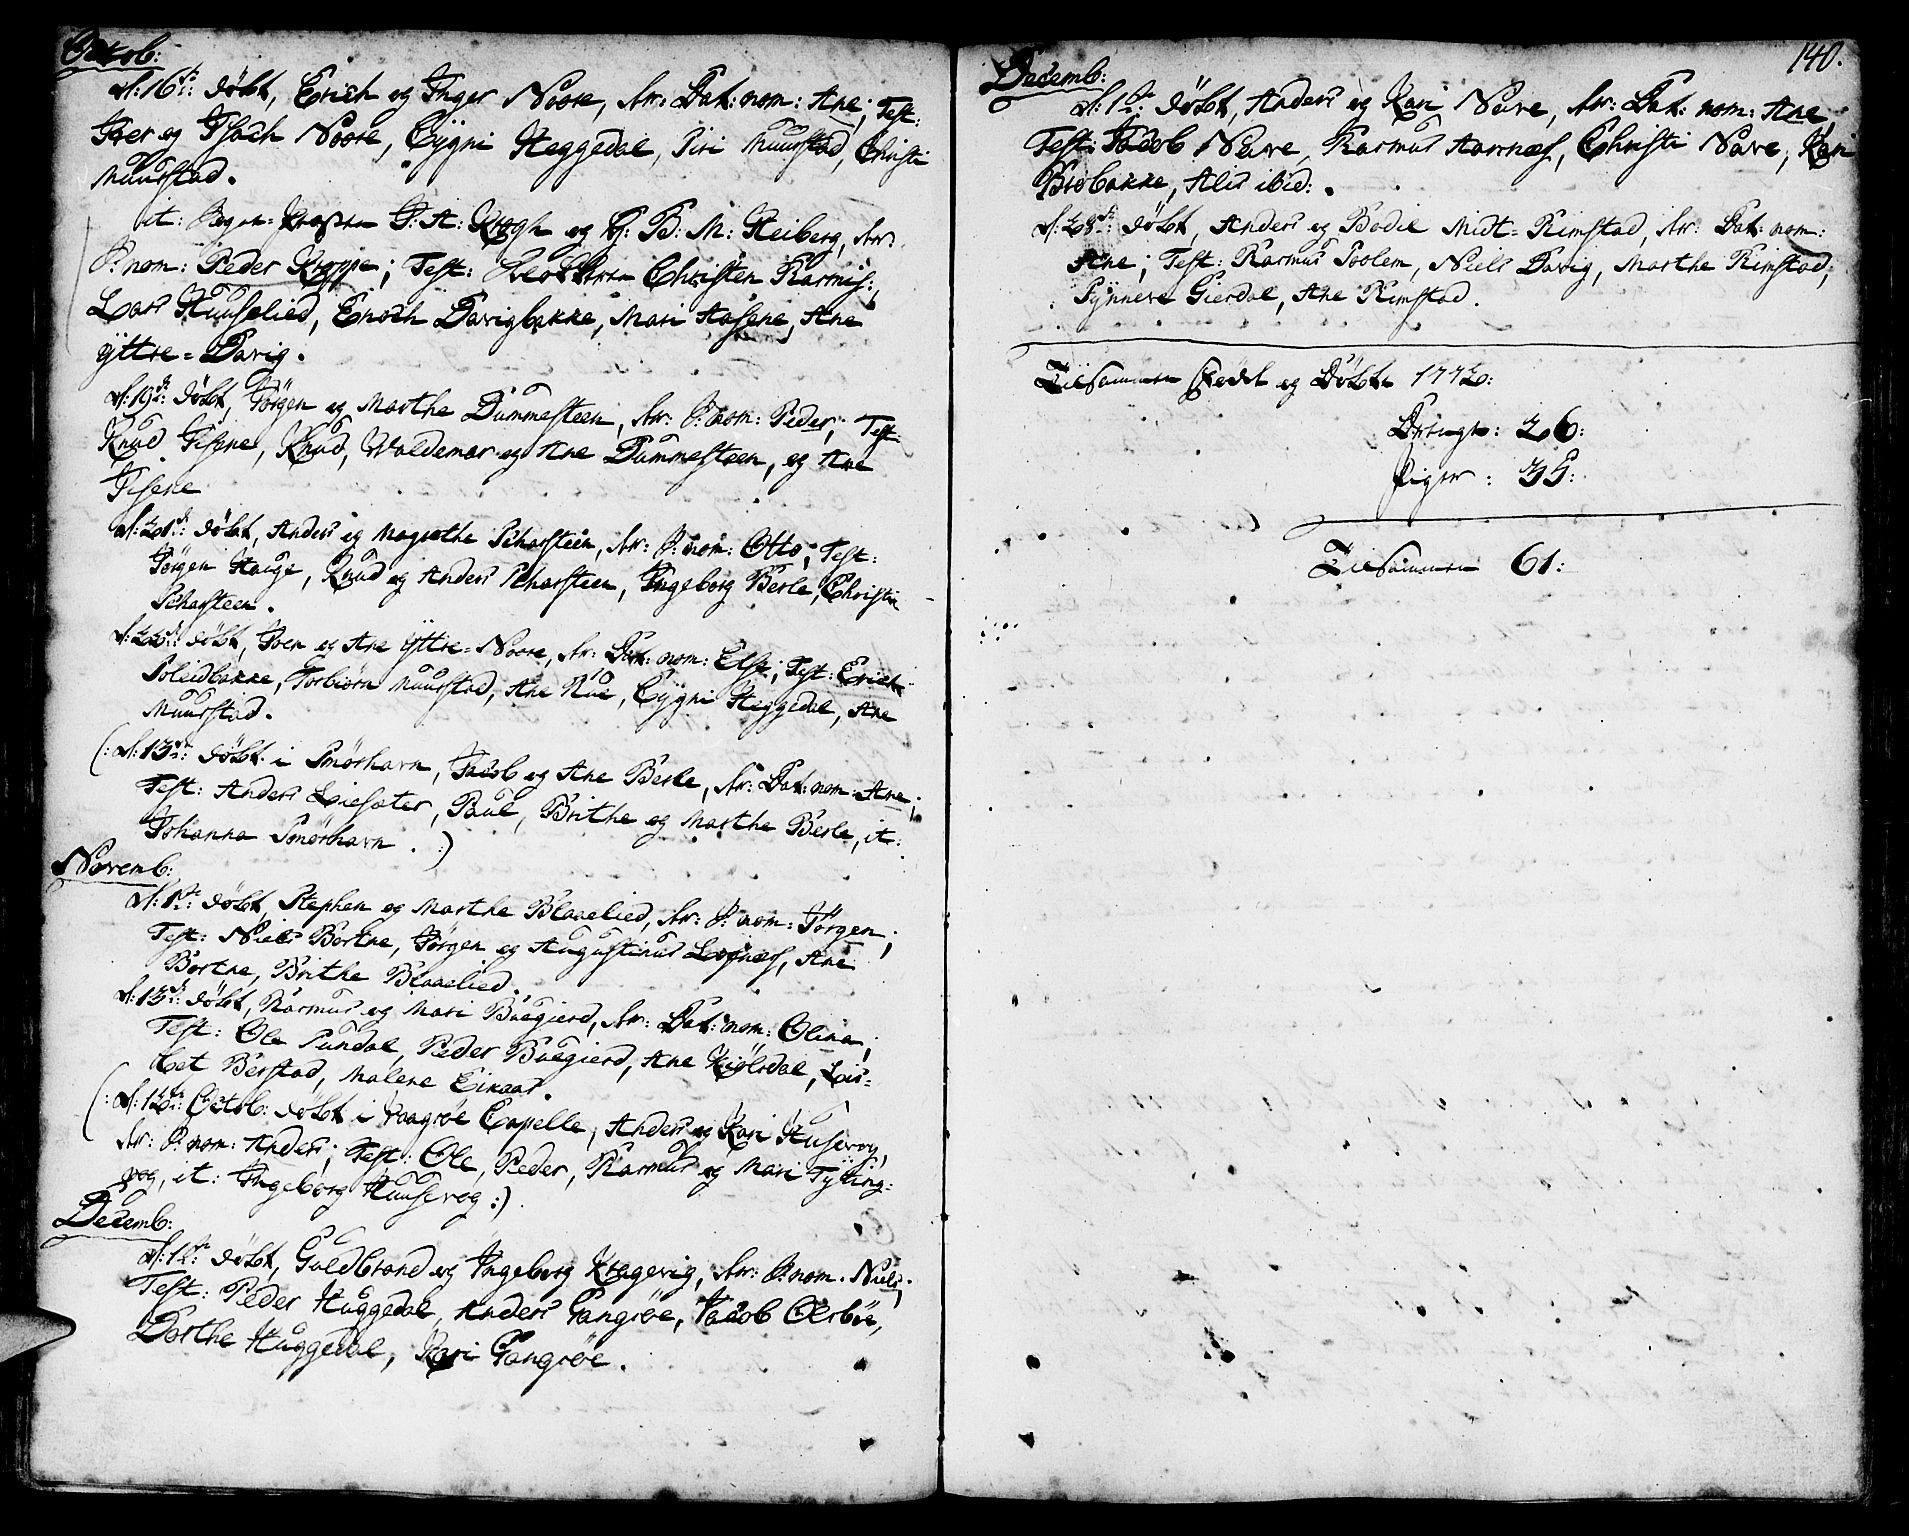 Octob:
d: 16de: døbt, Erich og Inger Noore, dr: Dat: nom: Ane; Test:
Iver og Isach Noore, Cygni Heggedal, Siri Muurstad, Christi
Muurstad.
it: J: A: Krogh og Fr: B: M: Heiberg, dr:
S: nom: Peder Kroppe; Test: Christen Rasmis:,
Lars Huuselied, Enoch Davigbakke, Mari Aasene, Ane
Yttre-Davig.
d: 19de: døbt, Jörgen og Marthe Dummesteen, dr: S: nom: Peder; Test:
Knud Fisene, Knud, Waldemar og Ane Dummesteen, og Ane
Fisene
d: 21de: døbt, Anders og Magrethe Scharsteen, dr: S: nom: Otto; Test:
Jørgen Hauge, Knud og Anders Scharsteen, Ingeborg Berle, Christi
Scharsteen.
d: 22de: døbt, Joen og Ane Yttre-Noore, dr: Dat: nom: Else; Test: Erich
Sleidbakke, Torbiørn Muurstad, Ane Rue, Cygni Heggedal, Ane
Muurstad.
(: d: 13de: døbt i Smørhavn, Jacob og Ane Berle, dr: Dat: nom: Ane;
Test: Anders Liesæter, Paul, Brithe og Marthe Berle, it:
Johanna Smørhavn. :)
Novemb:
d: 1te: døbt, Stephen og Marthe Blaaelied, dr: S: nom: Jörgen;
Test: Niels Bortne, Jørgen og Augustinus Løfnæs, Ane
Bortne, Brithe Blaaelied.
d: 15de: døbt, Rasmus og Mari Buegierd, dr: Dat: nom: Olina;
Test: Ole Sundal, Peder Buegierd, Ane Kiölsdal, Lis-
bet Berstad, Malene Eikaas.
(: d: 12te: Octob: døbt i Vaagsöe Capelle, Anders og Kari Husevog,
dr: S: nom: Anders; Test: Ole, Peder, Rasmus og Mari Tyting-
vog, it: Ingeborg Huusevog :).
Decemb:
d: 1te: døbt, Guldbrand og Ingeborg Kragevig, dr: S: nom. Niels;
Test: Peder Huggedal, Anders Gangsøe, Jacob Oesböe,
Dorthe Huggedal, Kari Gangsøe.
140.
Decemb:
d: 1te: døbt, Anders og Kari Nave, dr: Dat: nom: Ane;
Test: Jacob Nave, Rasmus Aarnæs, Christi Nave, Kari
Brobakke, Alis ibid:.
d: 28de: døbt, Anders og Bodil Midt-Rimstad, dr: Dat: nom:
Ane; Test: Rasmus Soolem, Niels Davig, Marthe Rimstad,
Synneve Gierdal, Ane Rimstad.
Tilsammen Fødde og Døbte 1772:
Drenge: 26:
Piger: 35:
Tilsammen 61: